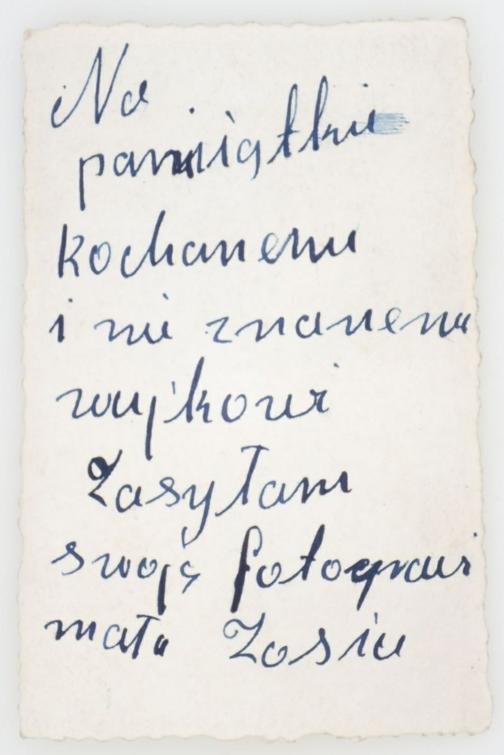 Na
pamiątkie
kochanemu
i nie znanemu
wujkowi
Zasyłam
swoję fotografi
mała Zosia